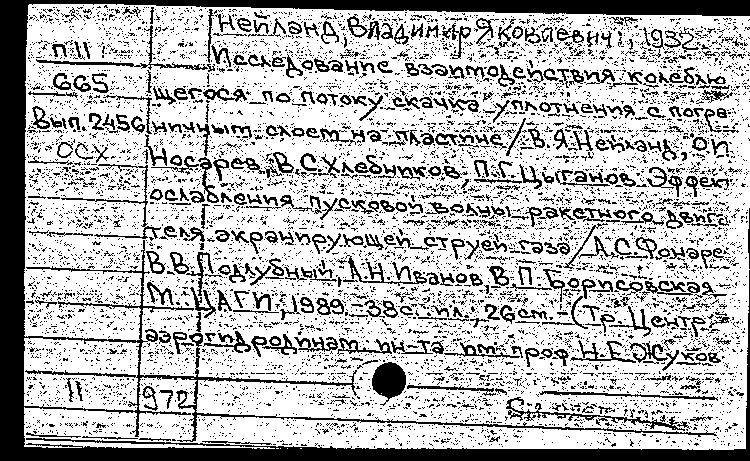 Нейланд, Владимир Яковлевич, 1932
П 11
Исследование взаимодействия колеблю
665
щегося по потоку скачка уплотнения с погра
Вып. 2456
ничным слоем на пластине / В.Я. Нейланд, О.П.
ОСХ
Носарев, В.С. Хлебников, П.Г. Цыганов. Эффект
ослабления пусковой волны ракетного двига
теля экранирующей струей газа / А.С. Фонаре
В.В. Подлубный, А.Н. Иванов, В.П. Борисовская
М.: ЦАГИ, 1989. - 38 с. ил.; 26 см. - (Тр. Центр.
аэрогидродинам. ин-та им. проф. Н.Е. Жуков
11 972